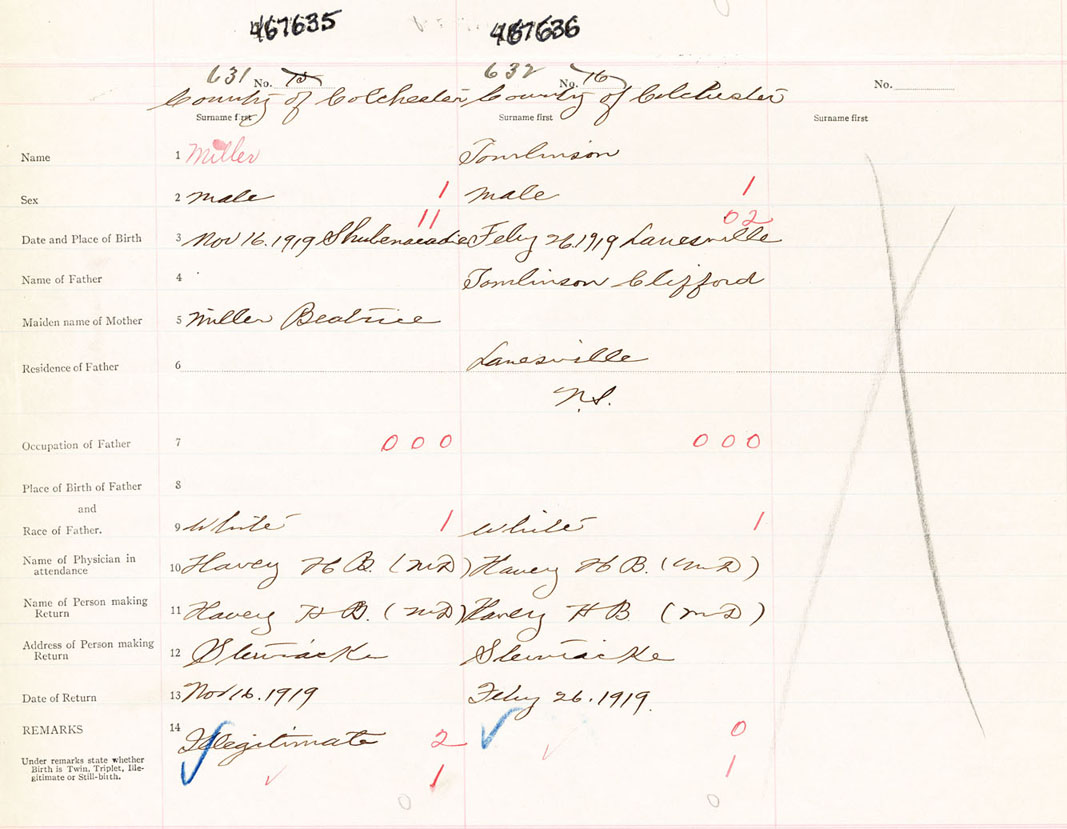 467635 467636
631 No. 15 632 No. 16 No.
County of Colchester County of Colchester
Surname first Surname first Surname first
Name 1 Miller Tomlinson
Sex 2 male 1 male 1
11 02
Date and Place of Birth 3 Nov 16. 1919 Shubenacadie Feby 26. 1919 Lanesville
Name of Father 4 Tomlinson Clifford
Maiden name of Mother 5 Miller Beatrice
Residence of Father 6 Lanesville
N.S.
Occupation of Father 7 000 000
Place of Birth of Father 8
and
Race of Father. 9 White 1 White 1
Name of Physician in
attendance 10 Havey H B. (MD) Havey H B. (MD)
Name of Person making
Return 11 Havey H B. (MD) Havey H B (MD)
Address of Person making
Return 12 Stewiacke Stewiacke
Date of Return 13 Nov 16. 1919 Feby 26. 1919.
REMARKS 14 Illegitimate 2 0
Under remarks state whether
Birth is Twin, Triplet, Ille-
gitimate or Still-birth. 1 1
0 0